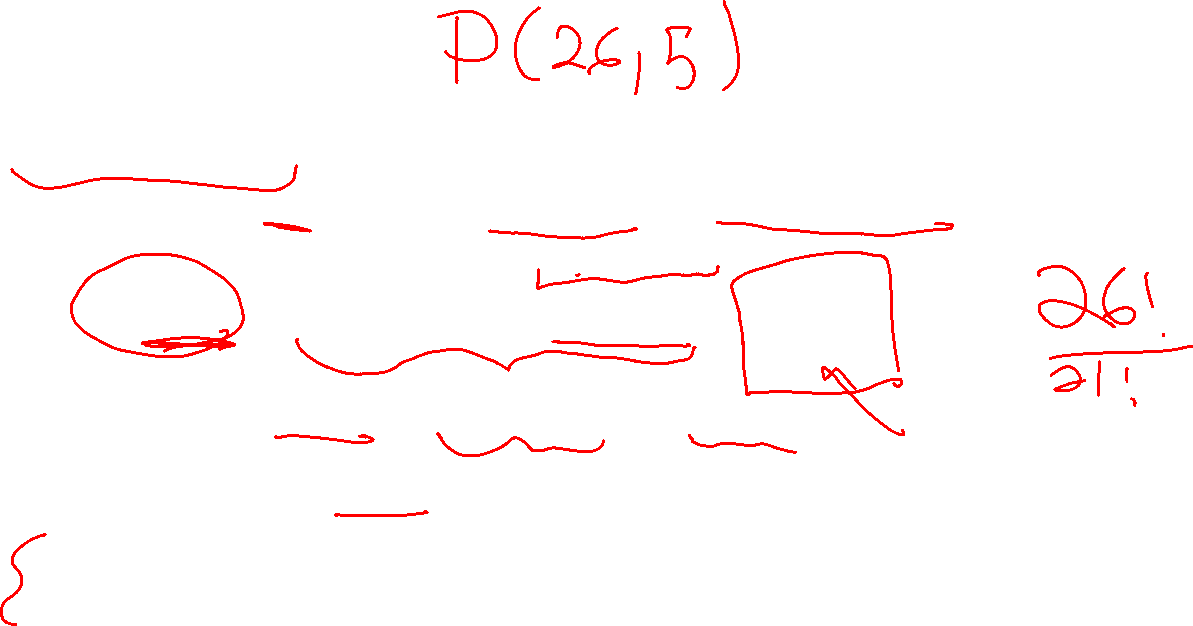 P(26,5)
26!
21!